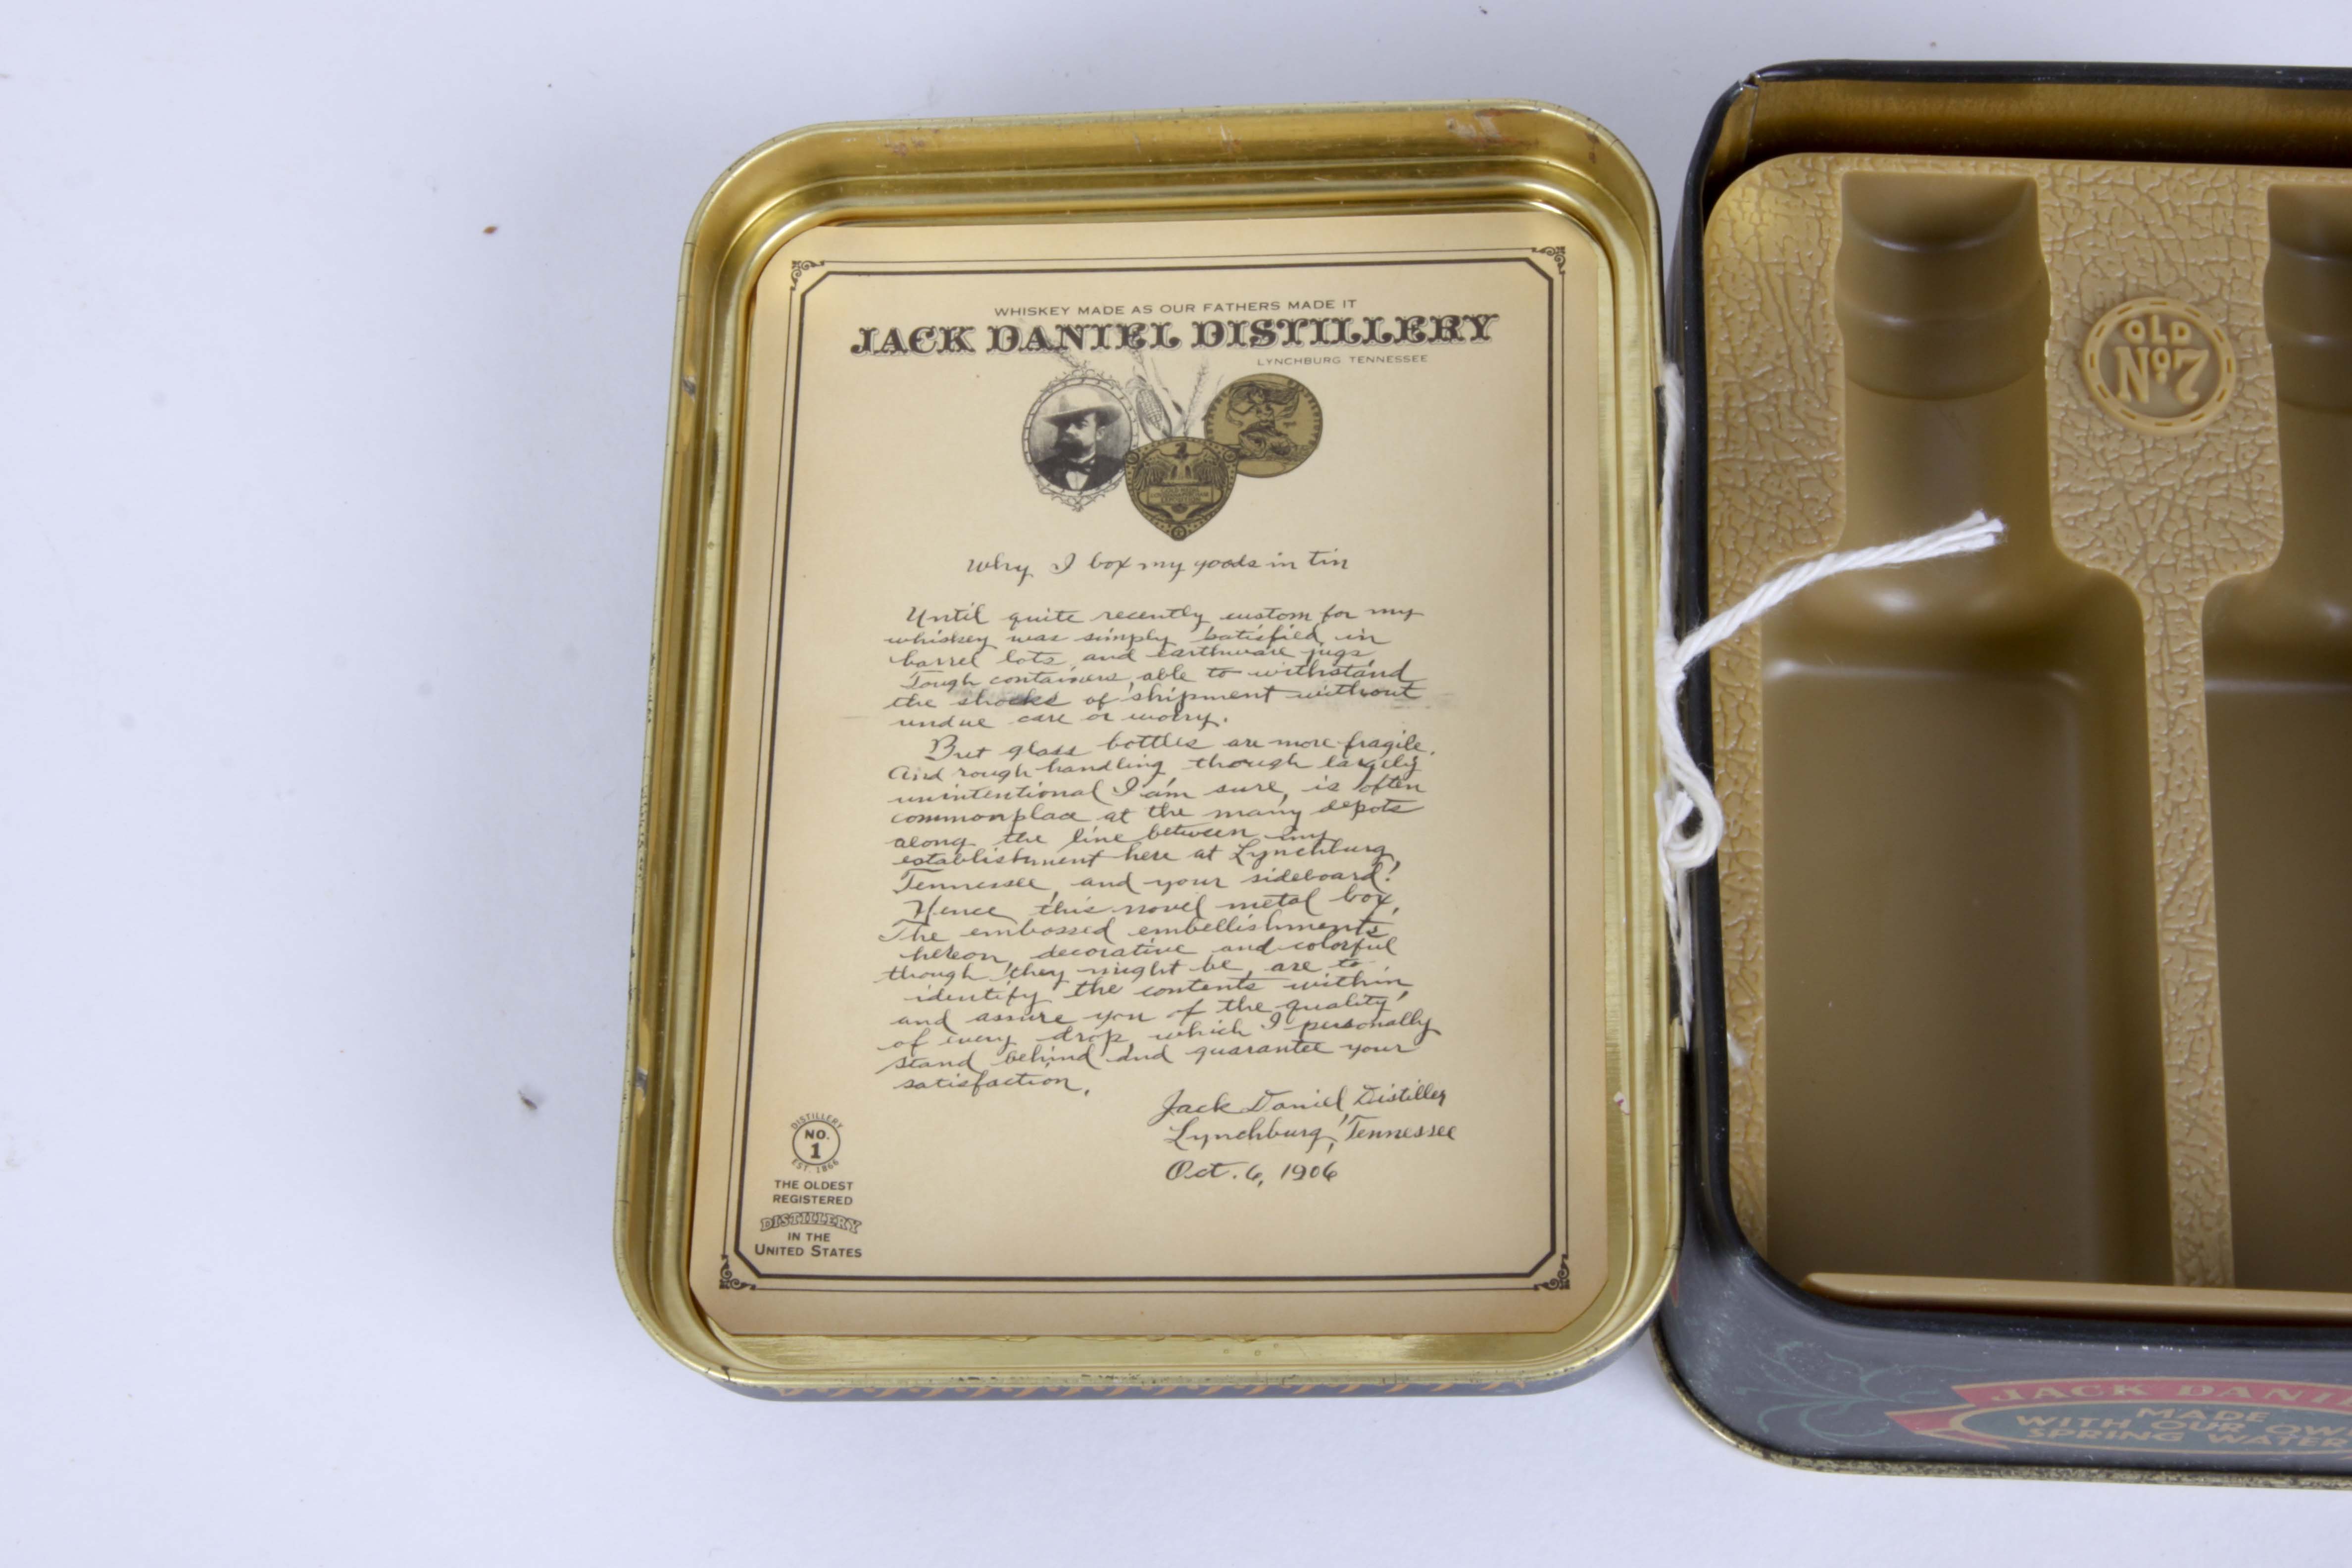 WHISKEY MADE AS OUR FATHERS MADE IT
JACK DANIEL DISTILLERY
LYNCHBURG TENNESSEE
Why I box my goods in tin
Until quite recently custom for my
whiskey was simply satisfied in
barrel lots, and earthware jugs
Tough containers, able to withstand
the shocks of shipment without
undue care or worry.
But glass bottles are more fragile.
And rough handling, though largely
unintentional I am sure, is often
commonplace at the many depots
along the line between my
establishment here at Lynchburg,
Tennessee, and your sideboard!
Hence this novel metal box.
The embossed embellishments
hereon, decorative and colorful
though they might be, are to
identify the contents within,
and assure you of the quality
of every drop, which I personally
stand behind and guarantee your
satisfaction.
Jack Daniel, Distiller
Lynchburg, Tennessee
Oct. 6, 1906
DISTILLERY
NO.
1
EST. 1866
THE OLDEST
REGISTERED
DISTILLERY
IN THE
UNITED STATES
OLD
No. 7
JACK DANI
MADE
WITH OUR OW
SPRING WATER